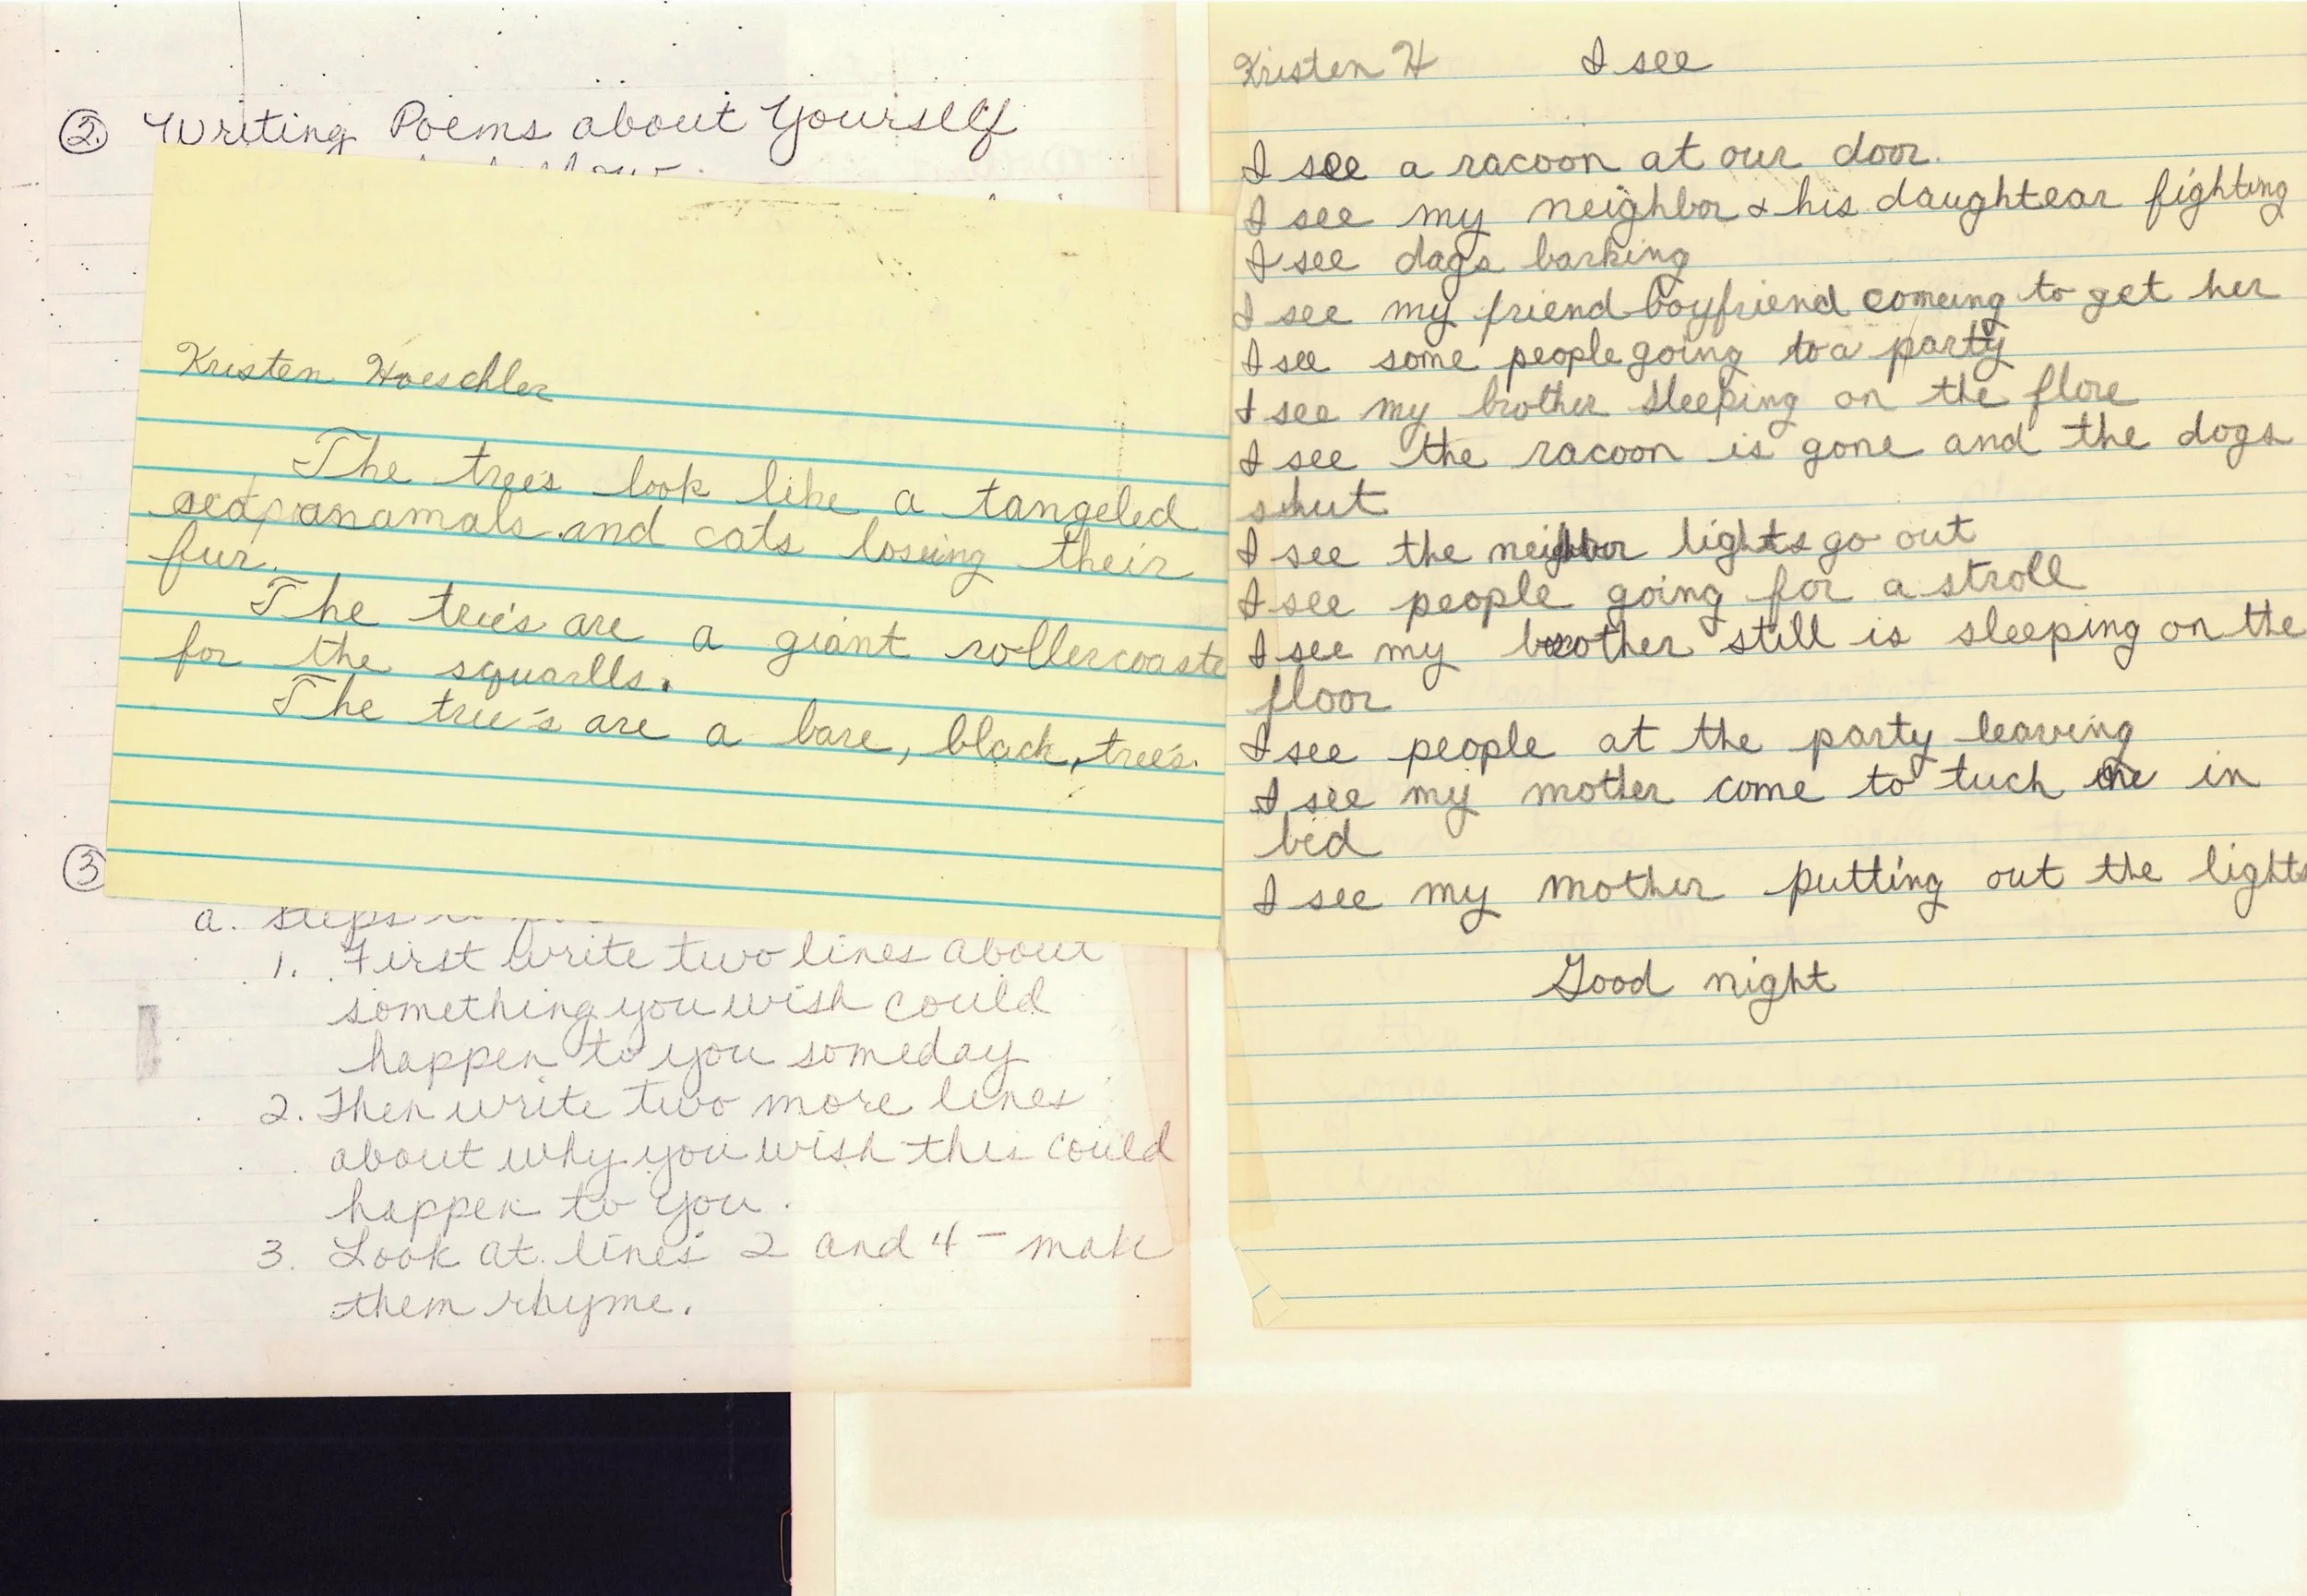 ② Writing Poems about Yourself
③
a. Steps
1. First write two lines about
something you wish could
happen to you someday
2. Then write two more lines
about why you wish this could
happen to you.
3. Look at lines 2 and 4 - make
them rhyme.
Kristen Hoeschler
The tree's look like a tangeled
sea anamals and cats loseing their
fur.
The tree's are a giant rollercoaste
for the squarlls.
The tree's are a bare, black, tree's.
Kristen H I see
I see a racoon at our door.
I see my neighbor & his daughtear fighting
I see dags barking
I see my friend boyfriend comeing to get her
I see some people going to a party
I see my brother sleeping on the flore
I see the racoon is gone and the dogs
shut
I see the neighbor lights go out
I see people going for a stroll
I see my brother still is sleeping on the
floor
I see people at the party leaving
I see my mother come to tuch me in
bed
I see my mother putting out the lights
Good night